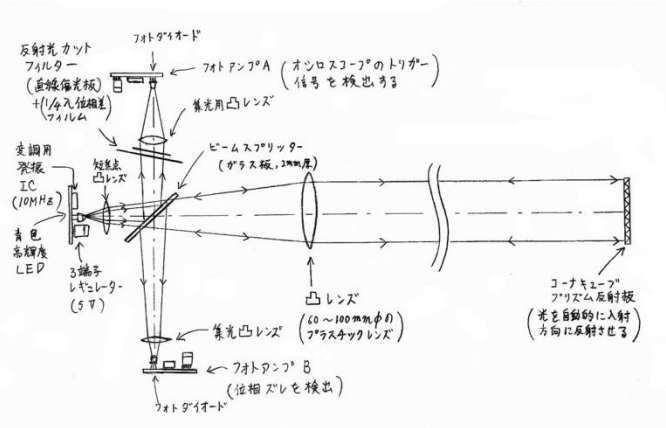 フォトダイオード
反射光カット
フィルター
(直線偏光板)
+(1/4λ位相差)
フィルム
フォトアンプA
(オシロスコープのトリガー
信号を検出する)
集光用凸レンズ
変調用
発振
IC
(10MHz)
短焦点
凸レンズ
ビームスプリッター
(ガラス板,2mm厚)
青色
高輝度
LED
3端子
レギュレーター
(5V)
凸レンズ
(60~100mmφの
プラスチックレンズ)
コーナキューブ
プリズム反射板
(光を自動的に入射
方向に反射させる)
集光凸レンズ
フォトアンプB
(位相ズレを検出)
フォトダイオード